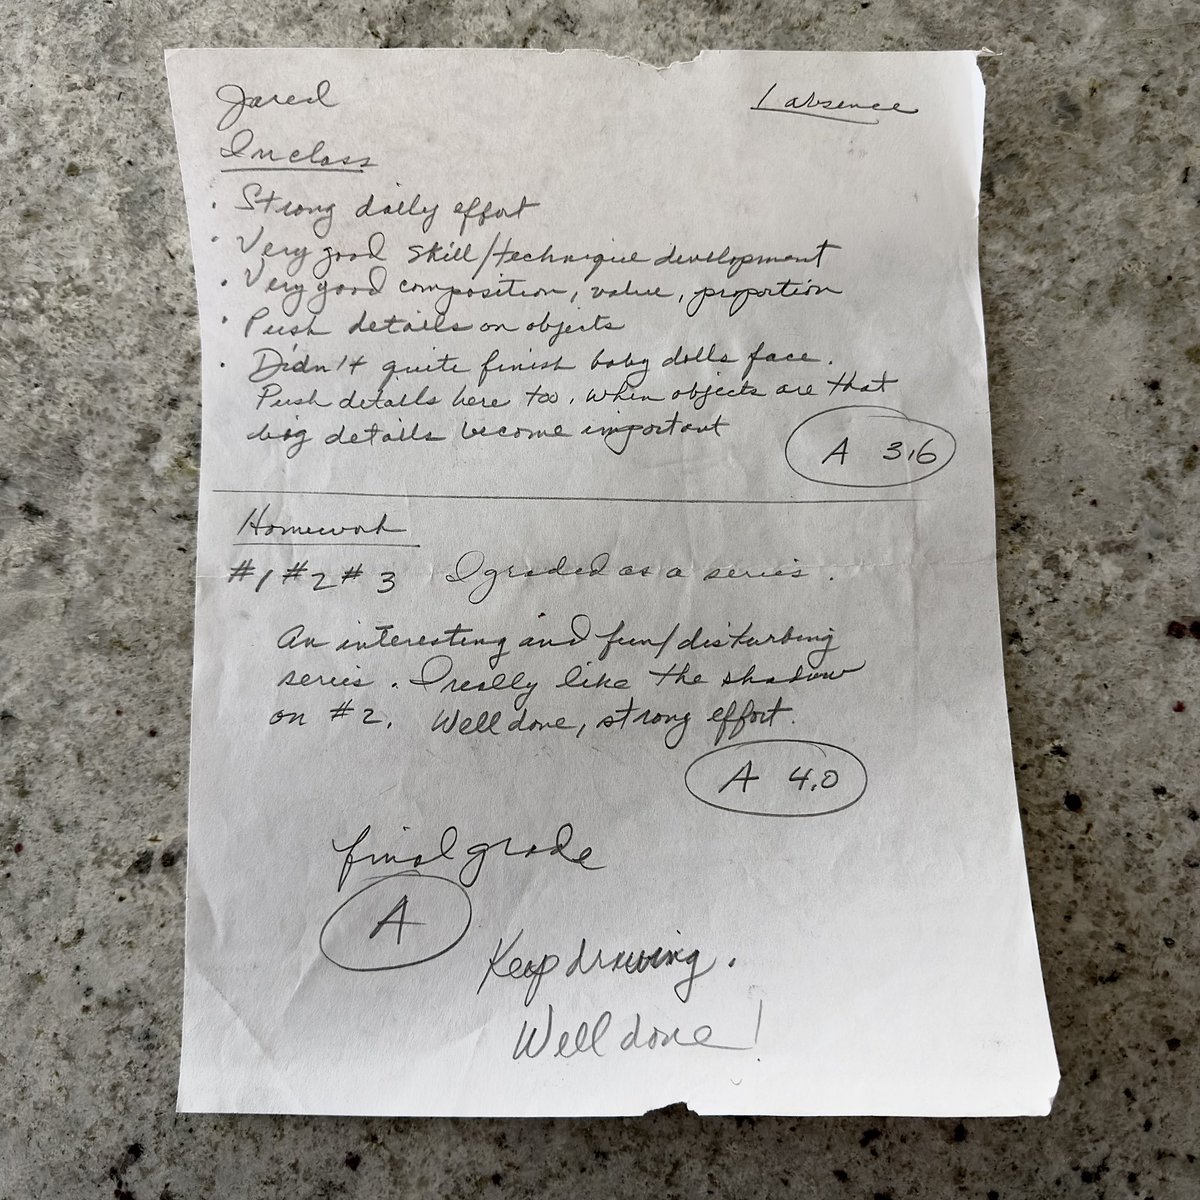 Jared 1 absence
In class
• Strong daily effort
• Very good skill/technique development
• Very good composition, value, proportion
• Push details on objects
• Didn't quite finish baby dolls face.
Push details here too. When objects are that
big details become important
A 3.6
Homework
#1 #2 #3 I graded as a series.
An interesting and fun/disturbing
series. I really like the shadow
on #2. Well done, strong effort.
A 4.0
final grade
A
Keep drawing.
Well done!